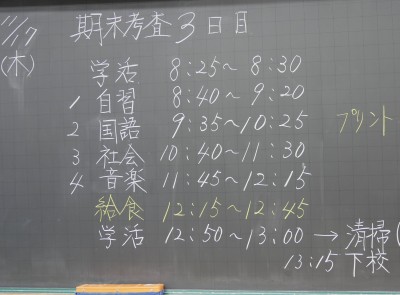 11/17 期末考査3日目
(木)
学活 8:25〜8:30
1 自習 8:40〜9:20
2 国語 9:35〜10:25 プリント
3 社会 10:40〜11:30
4 音楽 11:45〜12:15
給食 12:15〜12:45
学活 12:50〜13:00 → 清掃(
13:15 下校